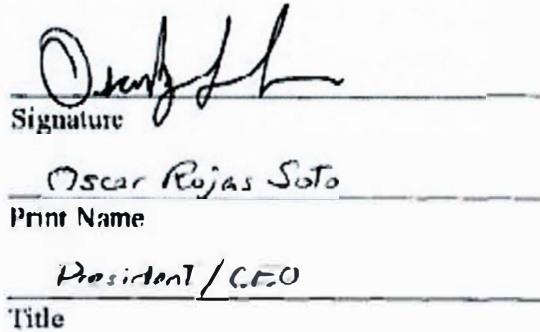 Signature
Oscar Rojas Soto
Print Name
President / CEO
Title